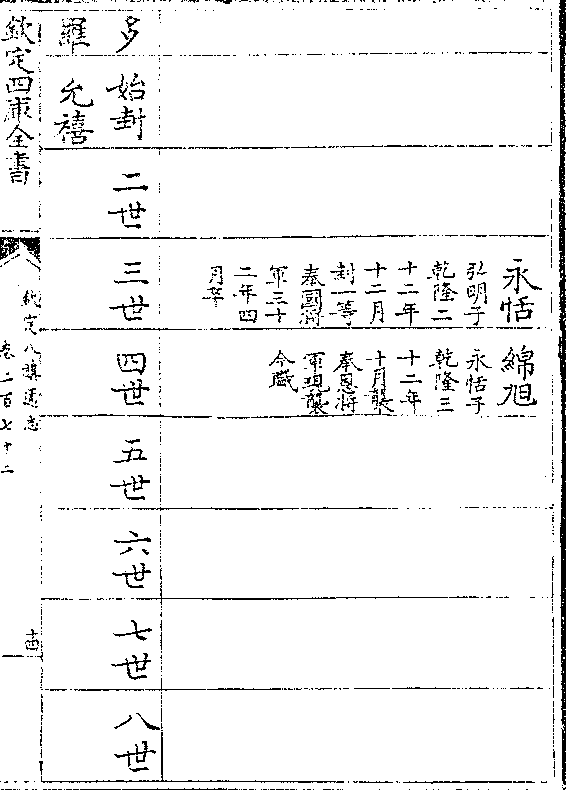 永恬
弘明子
乾隆二
十二年
十二月
封一等
奉國將
軍三十
二年四
月卒
綿旭
永恬子
乾隆三
十二年
十月襲
奉恩將
軍現襲
今職
多羅
始封允禧
二世
三世
四世
五世
六世
七世
八世
欽定四庫全書
欽定八旗通志
卷二百七十二